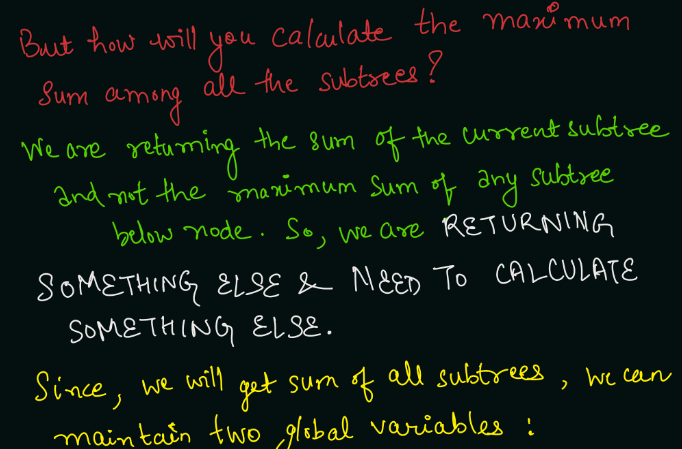 But how will you calculate the maximum
sum among all the subtrees?
We are returning the sum of the current subtree
and not the maximum sum of any subtree
below node. So, we are RETURNING
SOMETHING ELSE & NEED TO CALCULATE
SOMETHING ELSE.
Since, we will get sum of all subtrees, we can
maintain two global variables :